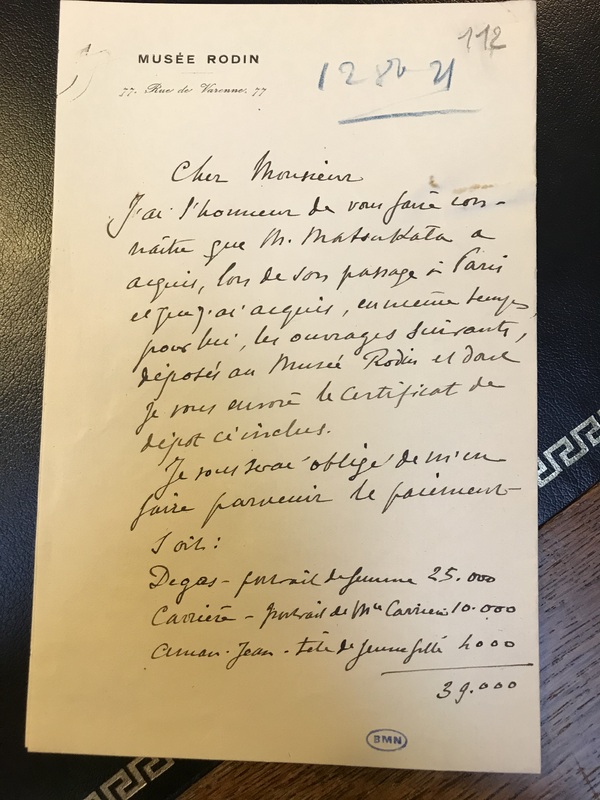 112
MUSÉE RODIN
12 86-21
77. Rue de Varenne. 77
Cher Monsieur
J'ai l'honneur de vous faire con-
naître que M. Matsukata a
acquis, lors de son passage à Paris
et que j'ai acquis, en même temps,
pour lui, les ouvrages suivants,
déposés au Musée Rodin et dont
je vous envoie le certificat de
dépôt ci inclus.
Je vous serai obligé de m'en
faire parvenir le paiement
Soit:
Degas - portrait de femme 25.000
Carrière - portrait de Mme Carrière 10.000
Aman-Jean - tête de jeune fille 4000
39.000
BMN